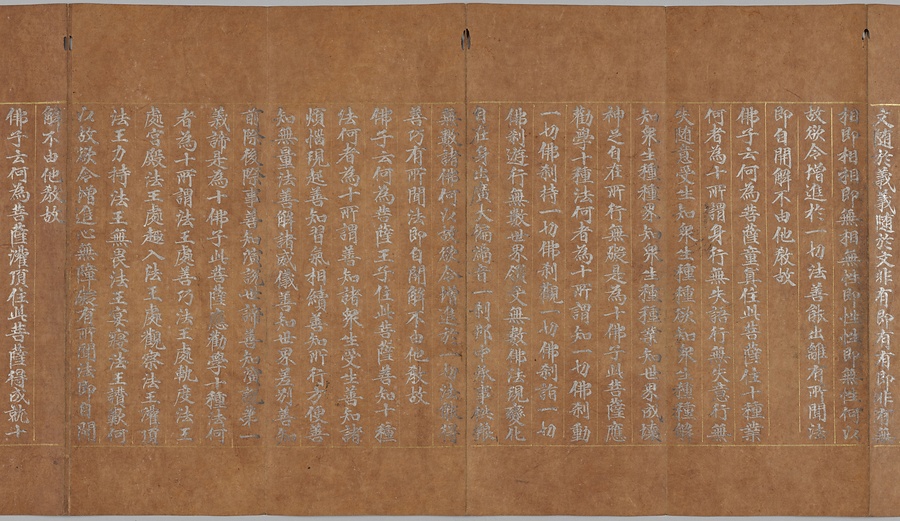 文隨於義義隨於文非有即有有即非有無
相即相相即無相無性即性性即無性何以
故欲令增進於一切法善能出離有所聞法
即自開解不由他教故
佛子云何為菩薩童真住此菩薩住十種業
何者為十所謂身行無失語行無失意行無
失隨意受生知衆生種種欲知衆生種種解
知衆生種種界知衆生種種業知世界成壞
神足自在所行無礙是為十佛子此菩薩應
勸學十種法何者為十所謂知一切佛刹動
一切佛刹持一切佛刹觀一切佛刹詣一切
佛刹遊行無數世界領受無數佛法現變化
自在身出廣大遍滿音一刹那中承事供養
無數諸佛何以故欲令增進於一切法能得
善巧有所聞法即自開解不由他教故
佛子云何為菩薩王子住此菩薩善知十種
法何者為十所謂善知諸衆生受生善知諸
煩惱現起善知習氣相續善知所行方便善
知無量法善解諸威儀善知世界差別善知
前際後際事善知演說世諦善知演說第一
義諦是為十佛子此菩薩應勸學十種法何
者為十所謂法王處善巧法王處軌度法王
處宮殿法王處趣入法王處觀察法王灌頂
法王力持法王無畏法王宴寢法王讚歎何
以故欲令增進心無障礙有所聞法即自開
解不由他教故
佛子云何為菩薩灌頂住此菩薩得成就十